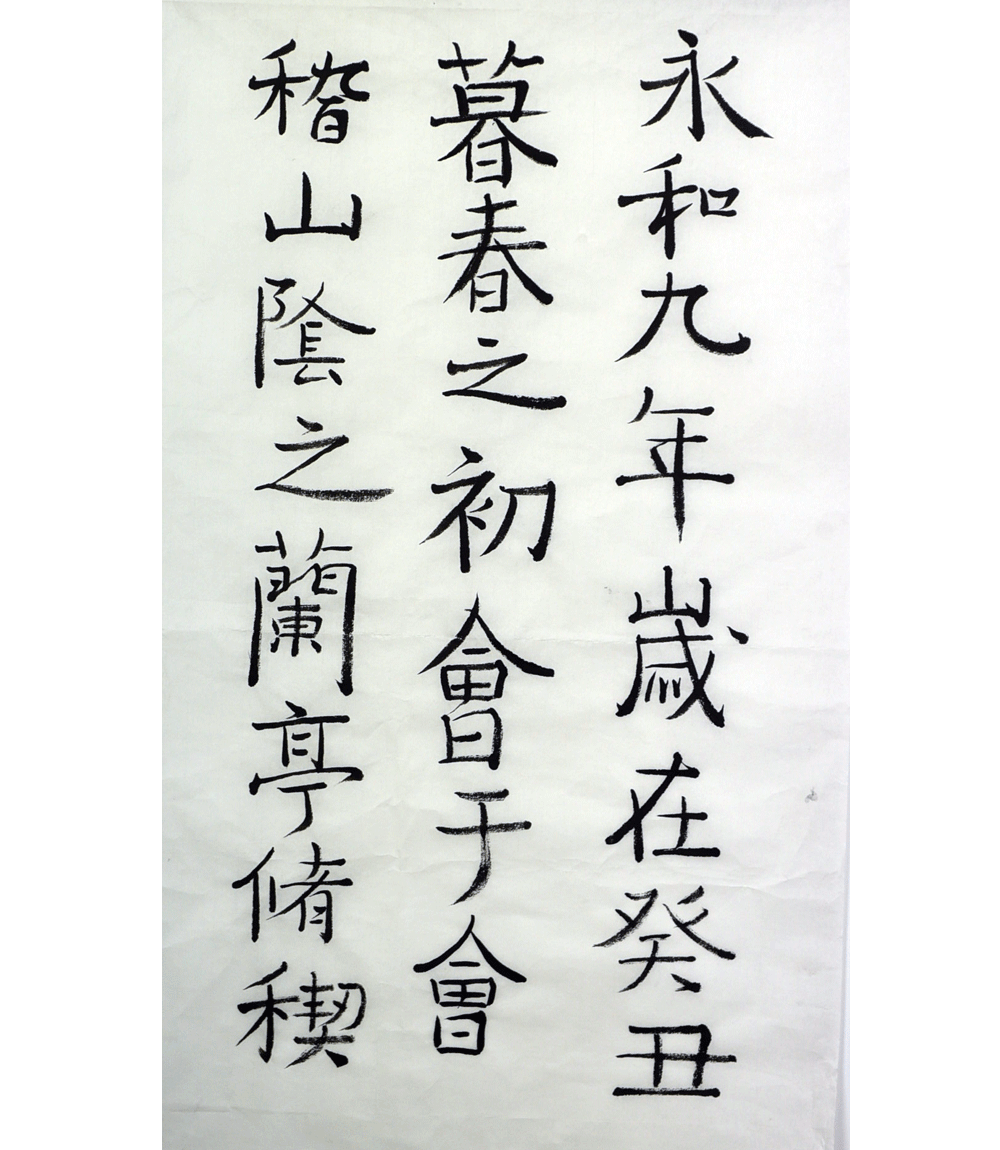 永和九年歲在癸丑
暮春之初會于會
稽山陰之蘭亭脩稧